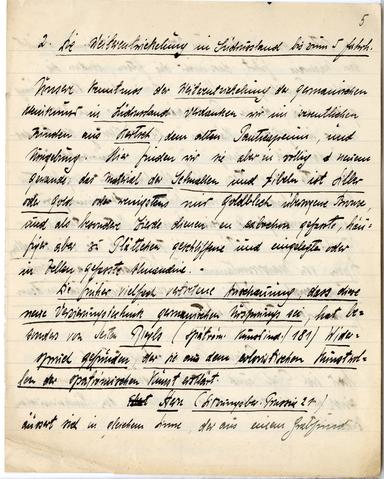 5
2. Die Weiterentwickelung in Südrussland bis zum 5 Jahrh.
Unsere Kenntnis der Weiterentwickelung der germanischen
Kleinkunst in Südrussland verdanken wir im wesentlichen
Funden aus Kertsch, dem alten Panticapaeum, und
Umgebung. Hier finden wir sie aber in völlig neuem
Gewande, das Material der Schnallen und Fibeln ist Silber
oder Gold oder wenigstens mit Goldblech überzogene Bronze,
und als besondere Zierde dienen en cabochon gefasste, häu-
figer aber zu Plättchen geschliffene und eingelegte oder
in Zellen gefasste Almandine.
Die früher vielfach vertretene Anschauung, dass diese
neue Verzierungstechnik germanischen Ursprungs sei, hat be-
sonders von Seiten Riegls (Spätröm. Kunstind. 181) Wider-
spruch gefunden, der sie aus dem koloristischen Kunstwol-
len der spätrömischen Kunst erklärt.
(Sitzungsber. Prussia 21)
äussert sich in gleichem Sinne, der aus einem Grabfund